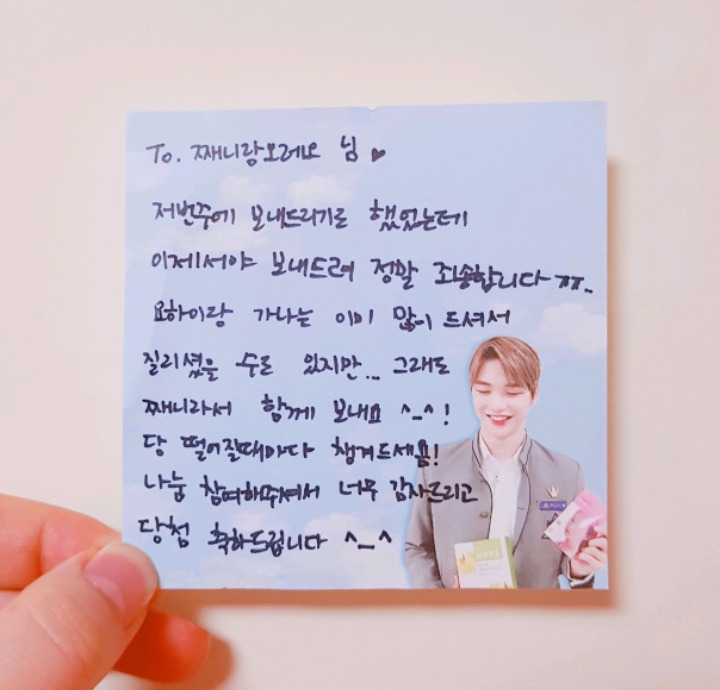 To. 째니랑오레오 님 ♥
저번주에 보내드리기로 했었는데
이제서야 보내드려 정말 죄송합니다ㅠㅠ..
요하이랑 가나는 이미 많이 드셔서
질리셨을 수도 있지만... 그래도
째니라서 함께 보내요 ^_^!
당 떨어질때마다 챙겨드세욤!
나눔 참여해주셔서 너무 감사드리고
당첨 축하드립니다 ^_^